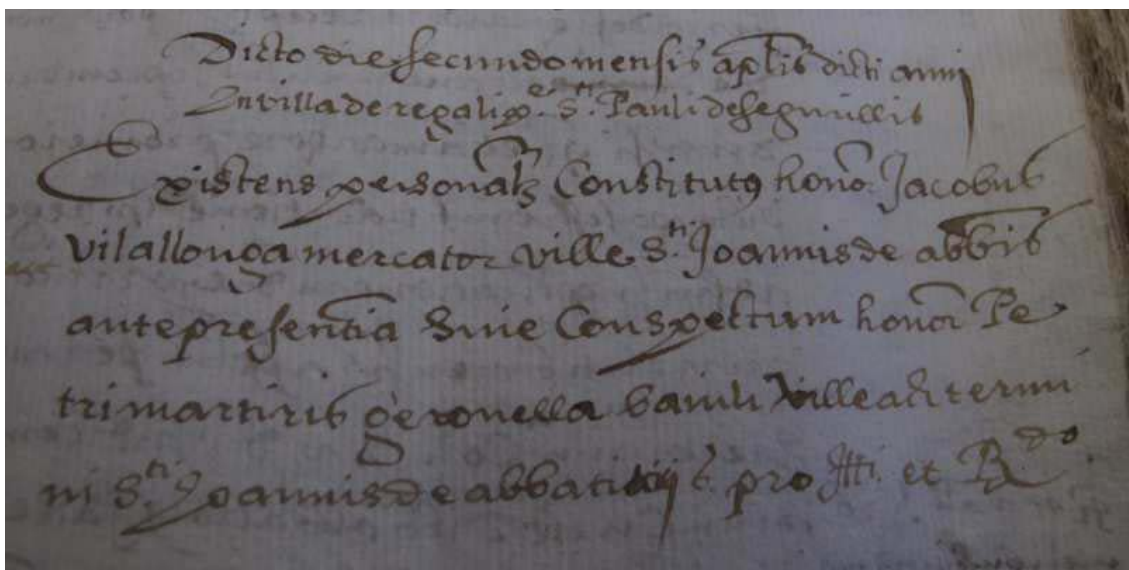 Dicto die secundo mensis aplis dicti anni
In villa de regali pe. Sti. Pauli de seguriis
Existens personalr Constitutus honor Jacobus
vilallonga mercator ville Sti. Joannis de abbis
ante presentia Sive Conspectum honor Pe
tri martiris geronella bauili ville ac termi
ni Sti. Joannis de abbati pro Illi. et Rdo